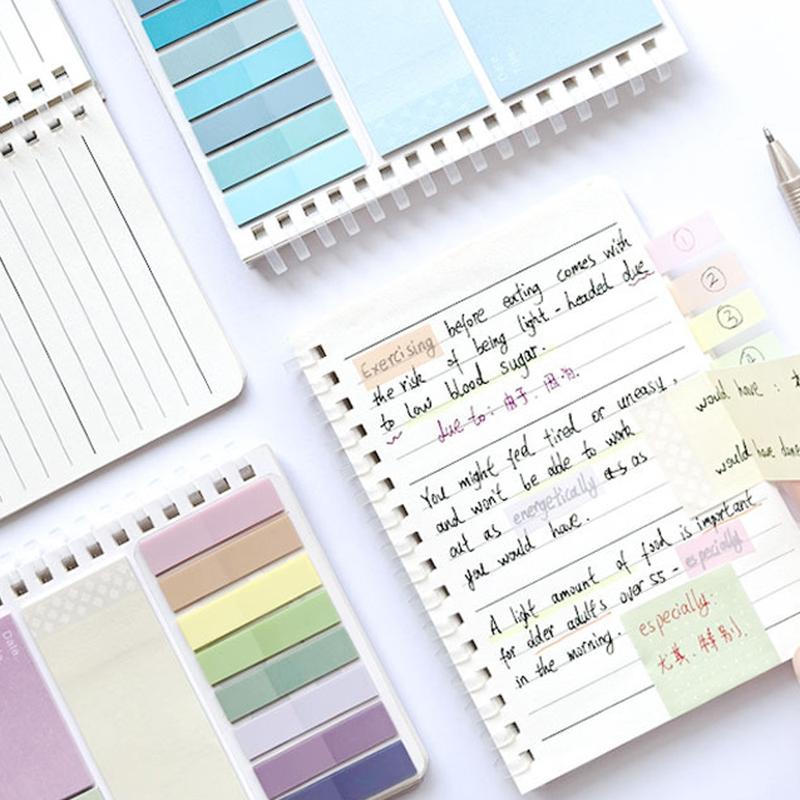 Exercising before eating comes with
the risk of being light-headed due
to low blood sugar.
due to: 由于. 因为.
You might feel tired or uneasy,
and won't be able to work
out as energetically as as
you would have.
A light amount of food is important
for older adults over 55 - especially
in the morning.
especially:
尤其. 特别.
①
②
③
would have :
would have done
Date